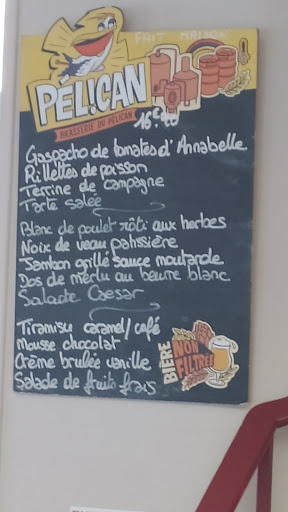 FAIT MAISON
PELICAN
BRASSERIE DU PÉLICAN
Gaspacho de tomates d'Annabelle
Rillettes de poisson
Terrine de campagne
Tarte salée
Blanc de poulet rôti aux herbes
Noix de veau patissière
Jambon grillé sauce moutarde
Dos de merlu au beurre blanc
Salade Caesar
Tiramisu caramel/café
Mousse chocolat
Crème brulée vanille
Salade de fruits frais
BIÈRE
NON
FILTRÉE